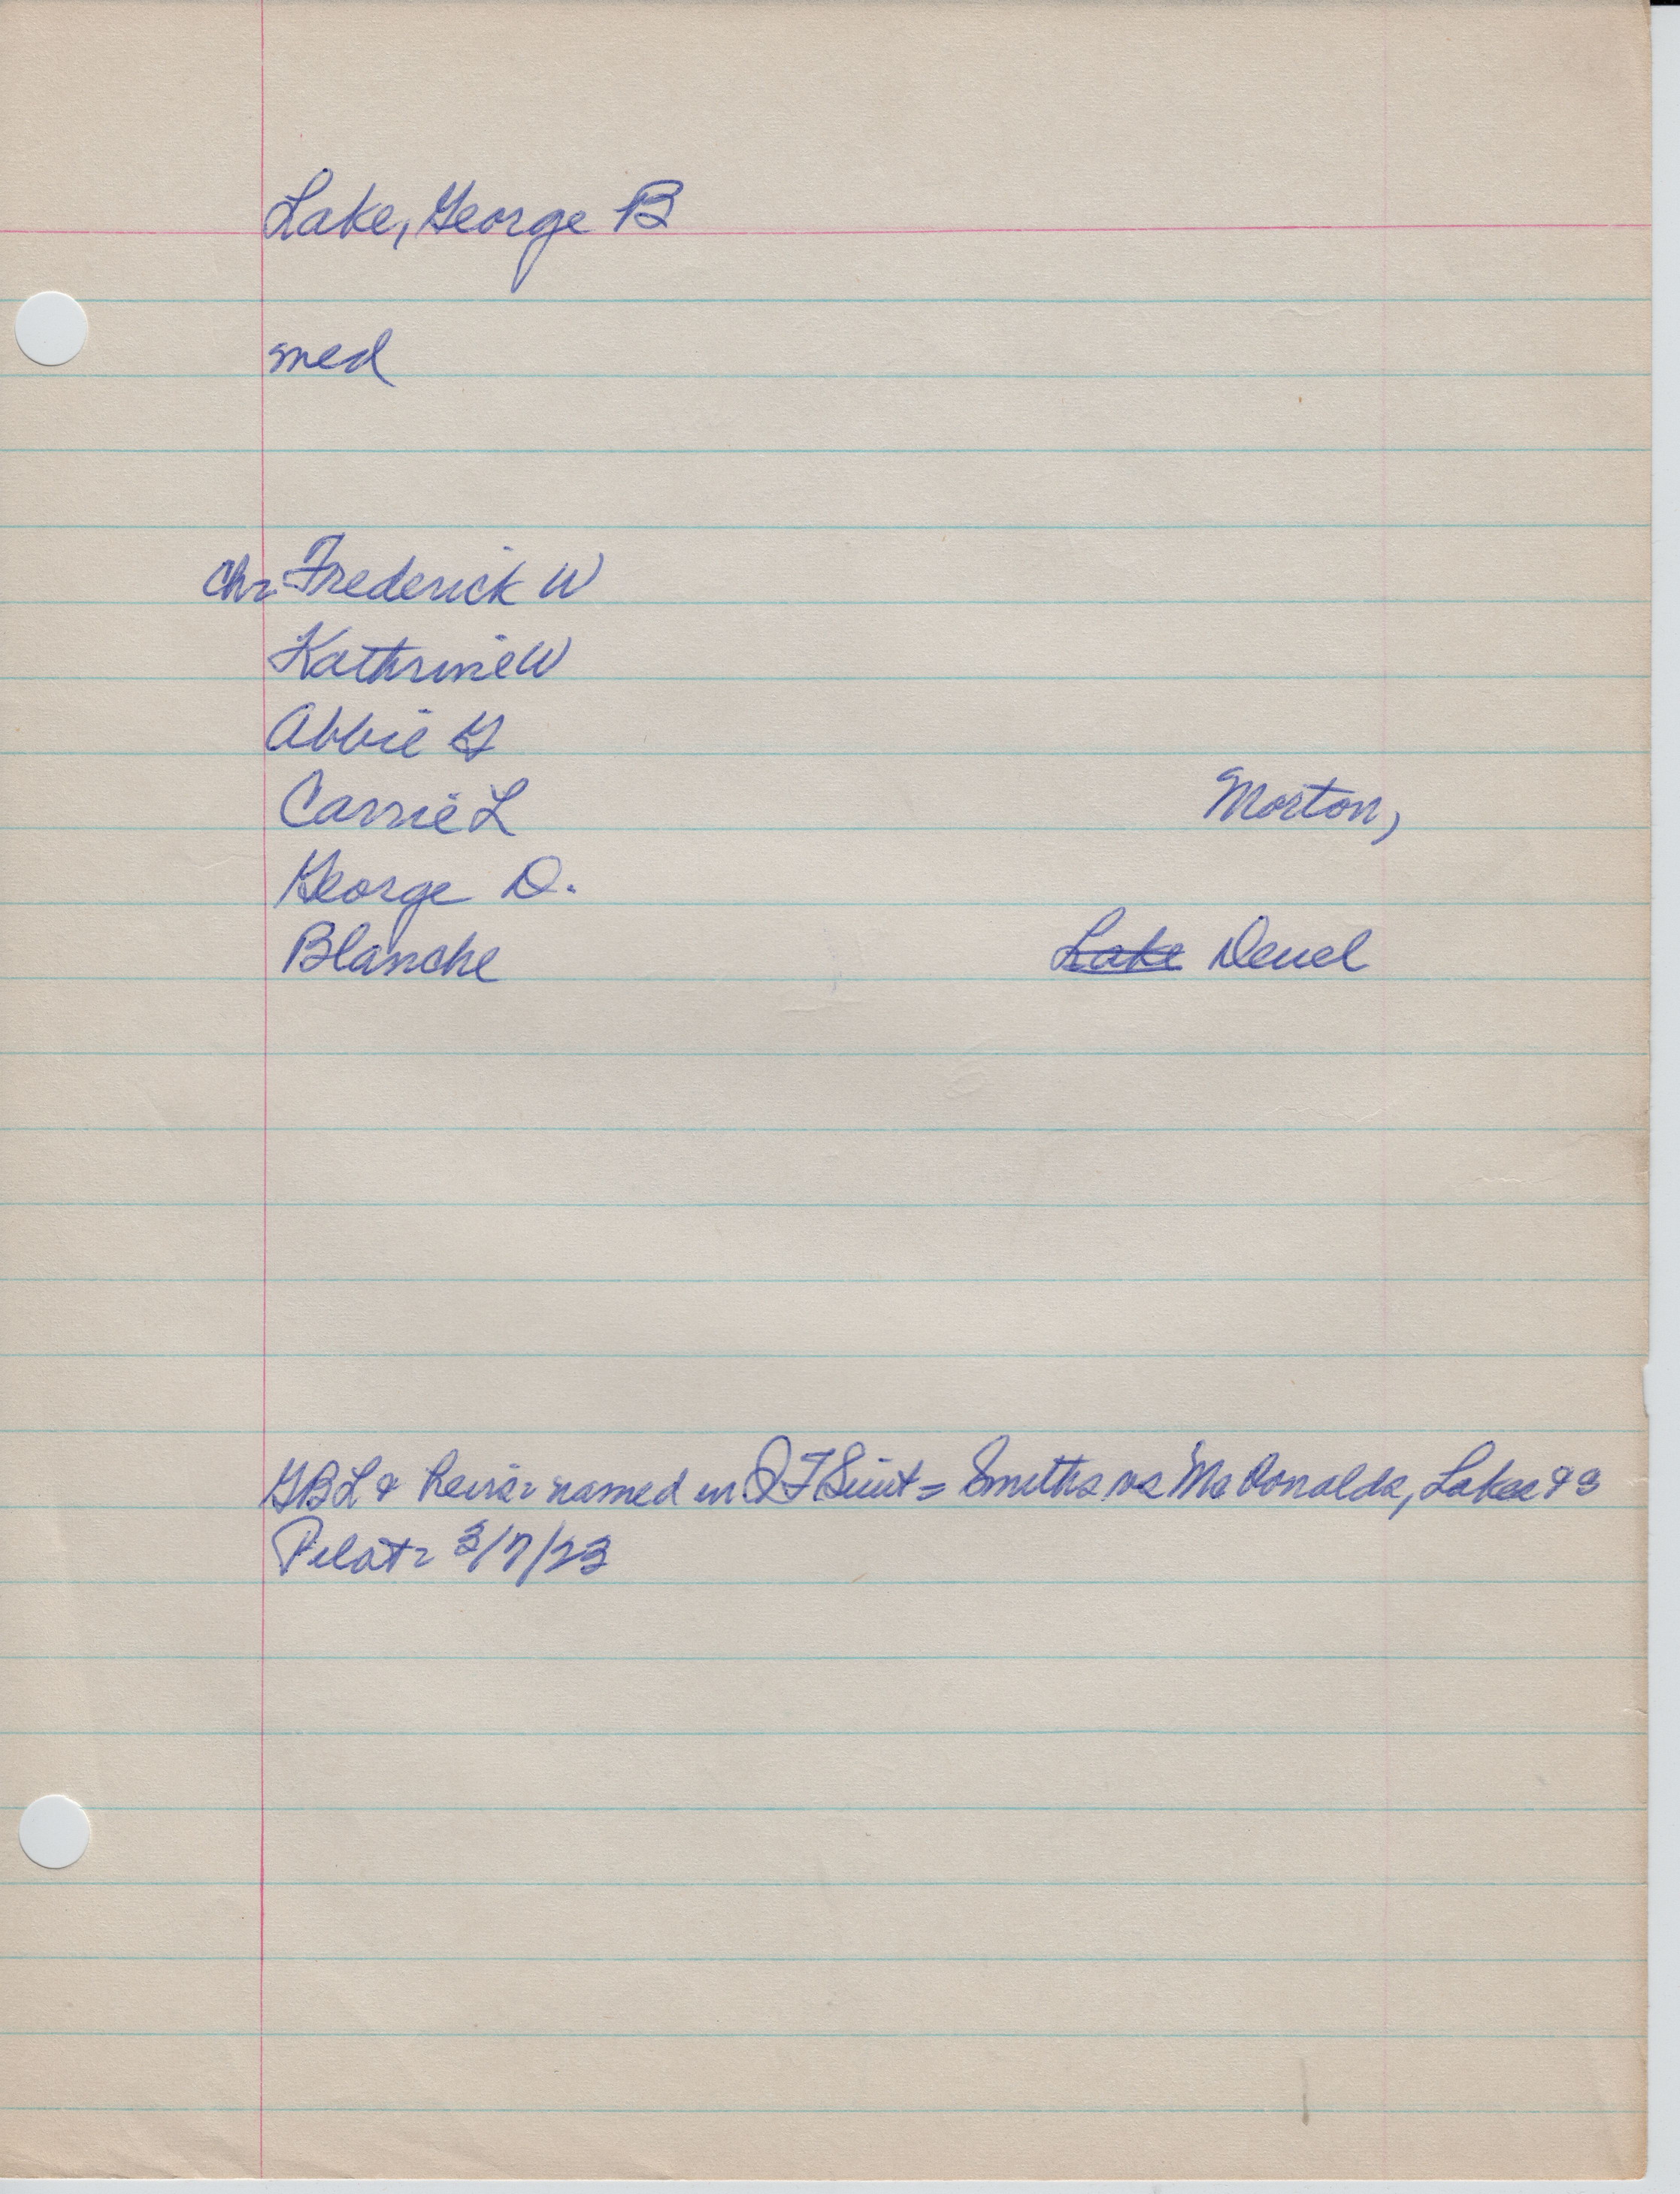 Lake, George B
med
Chr Frederick W
Kathrine W
Abbie G
Carrie L Morton,
George D.
Blanche Lake Deuel
GBL & heirs named in QT Suit = Smiths vs McDonalds, Lakes &
Pilot 3/7/23